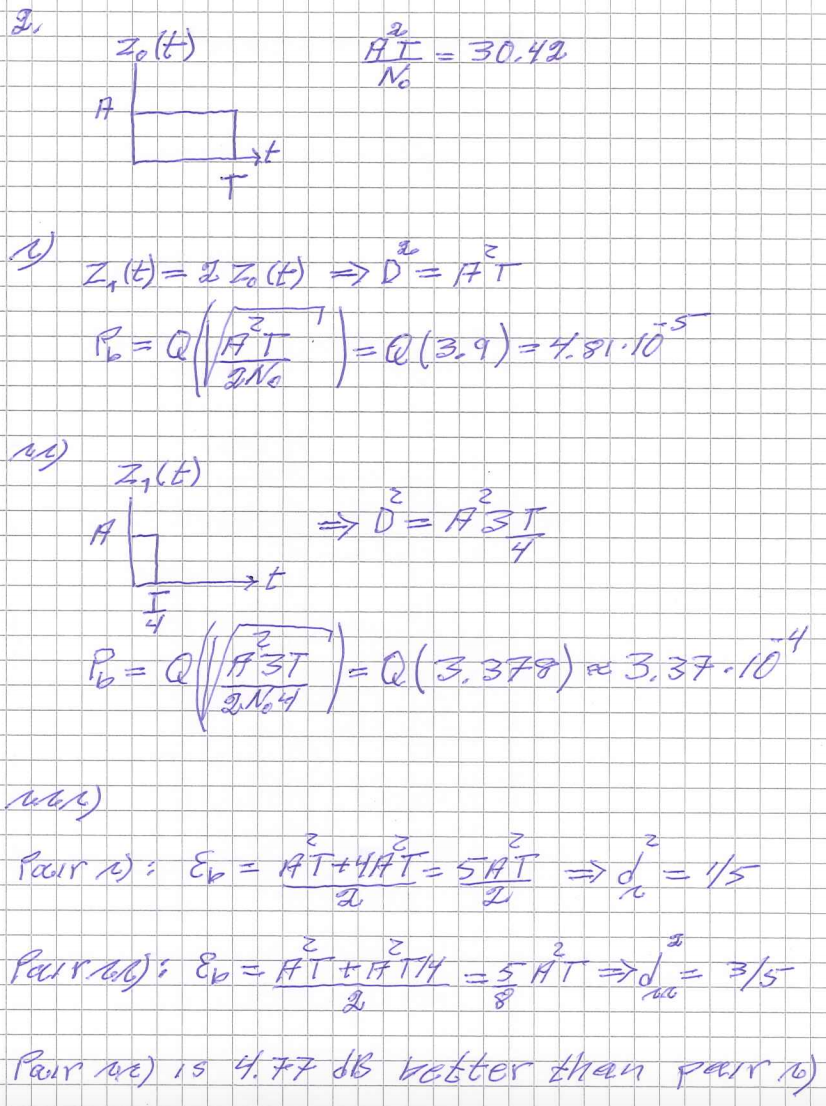 2.
z₀(t)
A²T/N₀ = 30.42
A
t
T
i)
z₁(t) = 2 z₀(t) ⇒ D² = A²T
P_b = Q(√(A²T/2N₀)) = Q(3.9) = 4.81·10⁻⁵
ii)
z₁(t)
A
⇒ D² = A² 3T/4
t
T/4
P_b = Q(√(A²3T/2N₀4)) = Q(3.378) ≈ 3.37·10⁻⁴
iii)
Pair i): ℰ_b = (A²T+4A²T)/2 = 5A²T/2 ⇒ d_i² = 1/5
Pair ii): ℰ_b = (A²T+A²T/4)/2 = 5/8 A²T ⇒ d_ii² = 3/5
Pair ii) is 4.77 dB better than pair i)